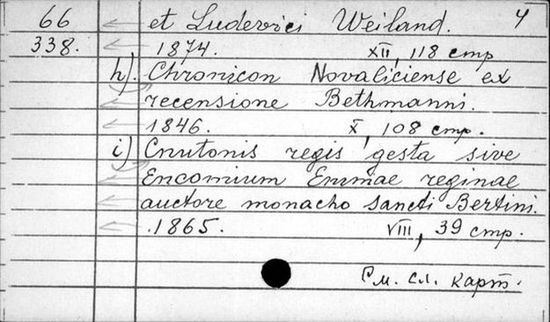 66 et Ludevici Weiland. 4
338. 1874. XII, 118 стр
h). Chronicon Novaliciense ex
recensione Bethmanni.
1846. X, 108 стр.
i) Cnutonis regis gesta sive
Encomium Emmae reginae
auctore monacho Sancti Bertini.
1865. VIII, 39 стр.
См. сл. карт.